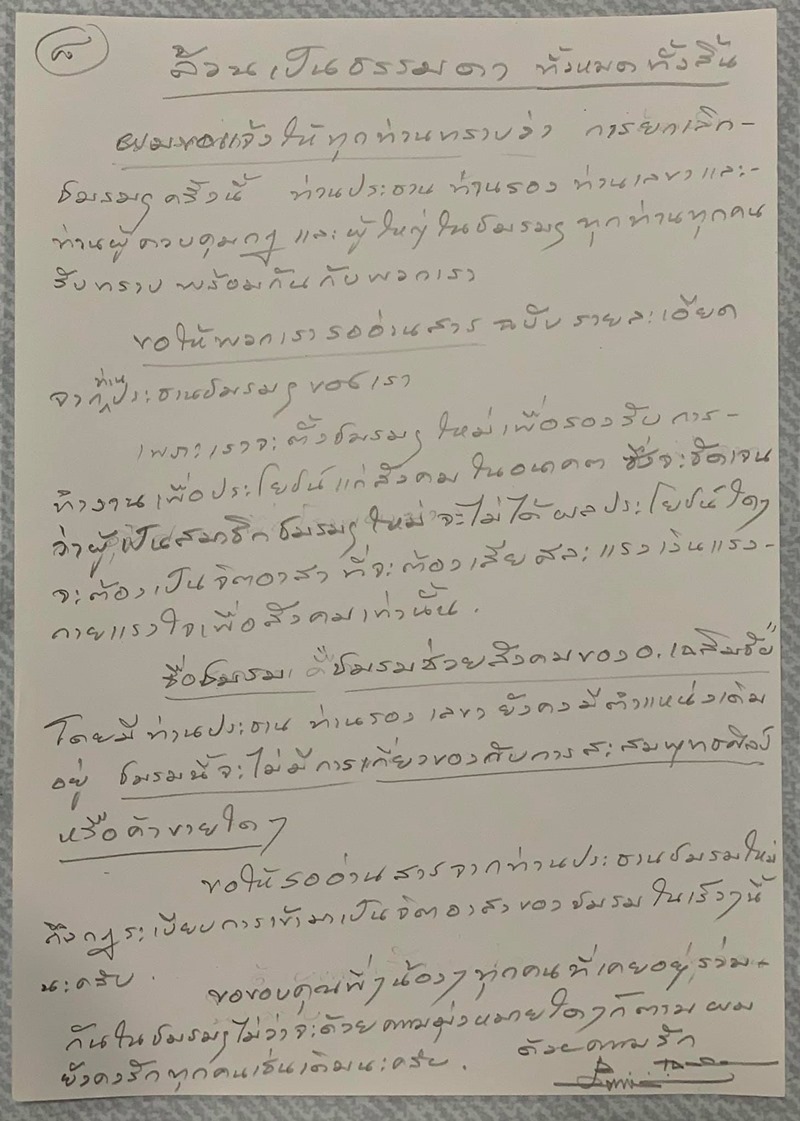 ๘
ล้วนเป็นธรรมดา ทั้งหมดทั้งสิ้น
ผมขอแจ้งให้ทุกท่านทราบว่า การยกเลิก-
ชมรมฯครั้งนี้ ท่านประธาน ท่านรอง ท่านเลขาและ-
ท่านผู้ควบคุมกฎ และผู้ใหญ่ในชมรมฯทุกท่านทุกคน
รับทราบพร้อมกันกับพวกเรา
ขอให้พวกเรารออ่านสาร ฉบับรายละเอียด
จากท่านประธานชมรมฯของเรา
เพราะเราจะตั้งชมรมฯใหม่เพื่อรองรับการ-
ทำงานเพื่อประโยชน์แก่สังคมในอนาคต ซึ่งจะชัดเจน
ว่าผู้เป็นสมาชิกชมรมฯใหม่จะไม่ได้ผลประโยชน์ใดๆ
จะต้องเป็นจิตอาสา ที่จะต้องเสียสละแรงเงินแรง-
กายแรงใจเพื่อสังคมเท่านั้น.
ชื่อชมรม คือ ชมรมช่วยสังคมของอ.เฉลิมชัย"
โดยมีท่านประธาน ท่านรอง เลขา ยังคงมีตำแหน่งเดิม
อยู่ ชมรมนี้จะไม่มีการเกี่ยวของกับการสะสมพุทธศิลป์
หรือค้าขายใดๆ
ขอให้รออ่านสารจากท่านประธานชมรมใหม่
ถึงกฎระเบียบการเข้ามาเป็นจิตอาสาของชมรมในเร็วๆนี้
นะครับ.
ขอขอบคุณพี่ๆน้องๆทุกคนที่เคยอยู่ร่วม-
กันในชมรมฯไม่ว่าจะด้วยความมุ่งหมายใดๆก็ตาม ผม
ยังคงรักทุกคนเช่นเดิมนะครับ.
ด้วยความรัก